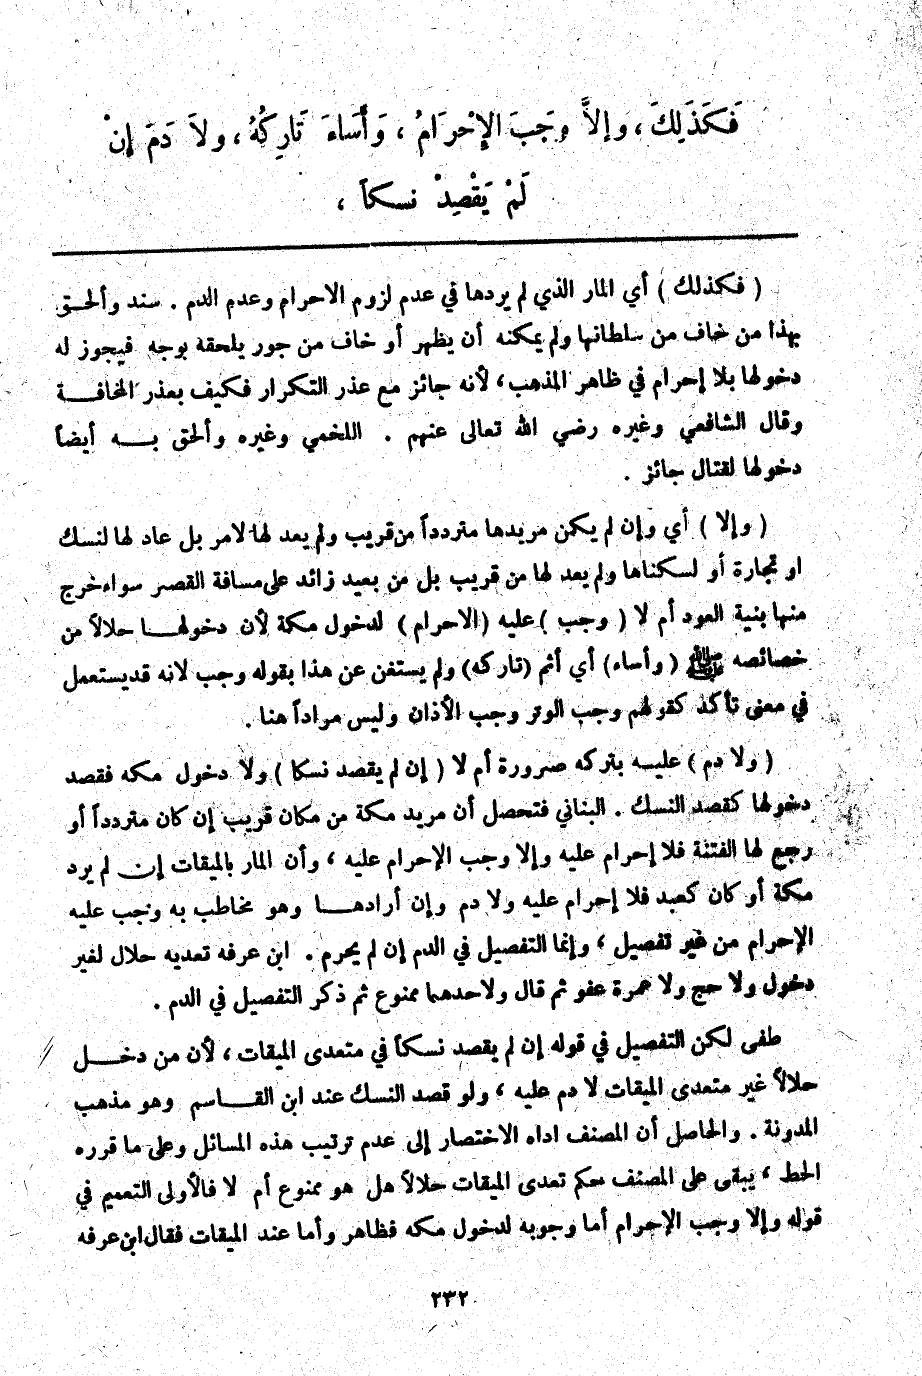 فَكَذَلِكَ، وإلاَّ وجَبَ الإِحْرَامُ ، وَأَسَاءَ تَارِكُهُ ، ولاَ دَمَ إنْ
لَمْ يَقْصِدْ نسكاً ،
( فكذلك ) أي المار الذي لم يردها في عدم لزوم الاحرام وعدم الدم . سند وألحق
بهذا من خاف من سلطانها ولم يمكنه أن يظهر أو خاف من جور يلحقة بوجه فيجوز له
دخولها بلا إحرام في ظاهر المذهب، لأنه جائز مع عذر التكرار فكيف بعذر المخافة
وقال الشافعي وغيره رضي الله تعالى عنهم . اللخمي وغيره وألحق به أيضاً
دخولها لقتال جائز .
( وإلا ) أي وإن لم يكن مريدها متردداً من قريب ولم يعد لها لامر بل عاد لها لنسك
او تجارة أو لسكناها ولم يعد لها من قريب بل من بعيد زائد على مسافة القصر سواء خرج
منها بنية العود أم لا ( وجب ) عليه (الاحرام ) لدخول مكة لأن دخولها حلالاً من
خصائصه ﷺ ( وأساء) أي أثم (تاركه) ولم يستغن عن هذا بقوله وجب لانه قد يستعمل
في معنى تأكد كقولهم وجب الوتر وجب الأذان وليس مراداً هنا .
( ولا دم ) عليه بتركه ضرورة أم لا ( إن لم يقصد نسكا ) ولا دخول مكه فقصد
دخولها كقصد النسك . البناني فتحصل أن مريد مكة من مكان قريب إن كان متردداً أو
رجع لها الفتنة فلا إحرام عليه وإلا وجب الإحرام عليه ، وأن المار بالميقات إن لم يرد
مكة أو كان كعبد فلا إحرام عليه ولا دم وإن أرادها وهو مخاطب به وجب عليه
الإحرام من غير تفصيل ، وإنما التفصيل في الدم إن لم يحرم . ابن عرفه تعديه حلال لغير
دخول ولا حج ولا عمرة عفو ثم قال ولاحدهما ممنوع ثم ذكر التفصيل في الدم .
طفى لكن التفصيل في قوله إن لم يقصد نسكاً في متعدى الميقات ، لأن من دخل
حلالاً غير متعدى الميقات لا دم عليه ، ولو قصد النسك عند ابن القاسم وهو مذهب
المدونة . والحاصل أن المصنف اداه الاختصار إلى عدم ترتيب هذه المسائل وعلى ما قرره
الحط ، يبقى على المصنف حكم تعدى الميقات حلالاً هل هو ممنوع أم لا فالأولى التعميم في
قوله وإلا وجب الإحرام أما وجوبه لدخول مكه فظاهر وأما عند الميقات فقال ابن عرفه
٢٣٢